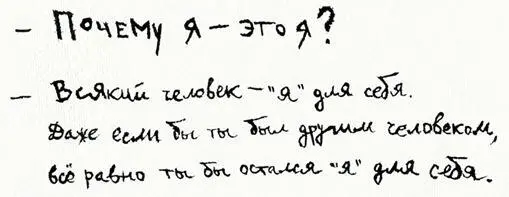 – Почему я – это я?
– Всякий человек – "я" для себя.
Даже если бы ты был другим человеком,
всё равно ты бы остался "я" для себя.